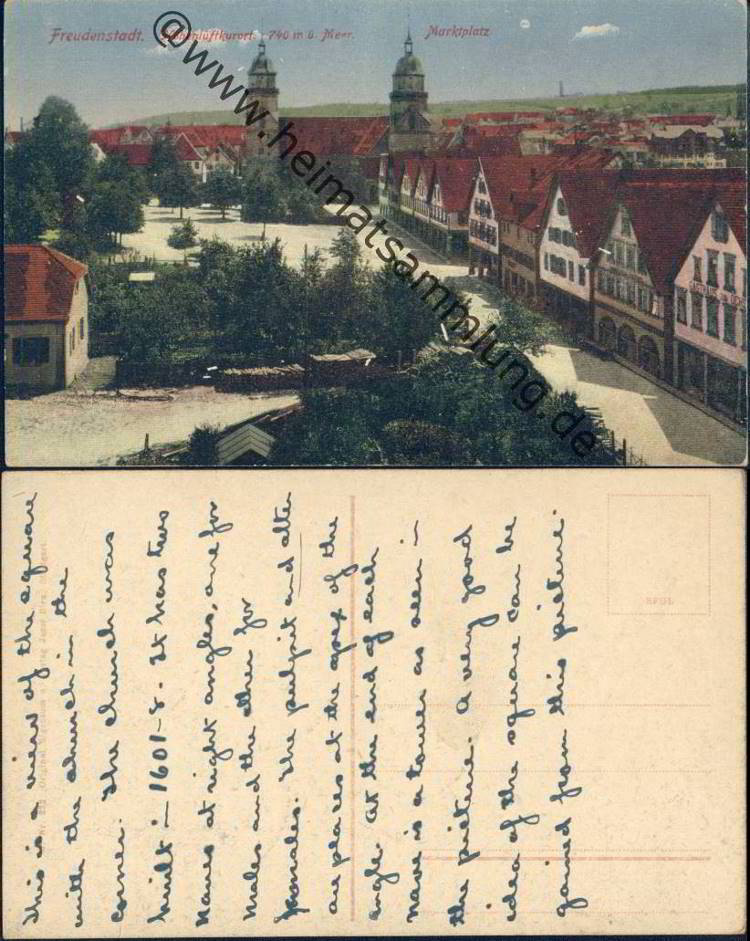 Freudenstadt. Höhenluftkurort. 740 m ü. Meer. Marktplatz
@www.heimatsammlung.de
This is a view of the square
with the church in the
corner. The church was
built in 1601-8. It has two
naves at right angles, one for
males and the other for
females. The pulpit and alter
are places at the apex of the
angle. At the end of each
nave is a tower as seen in
the picture. A very good
idea of the square can be
gained from this picture.